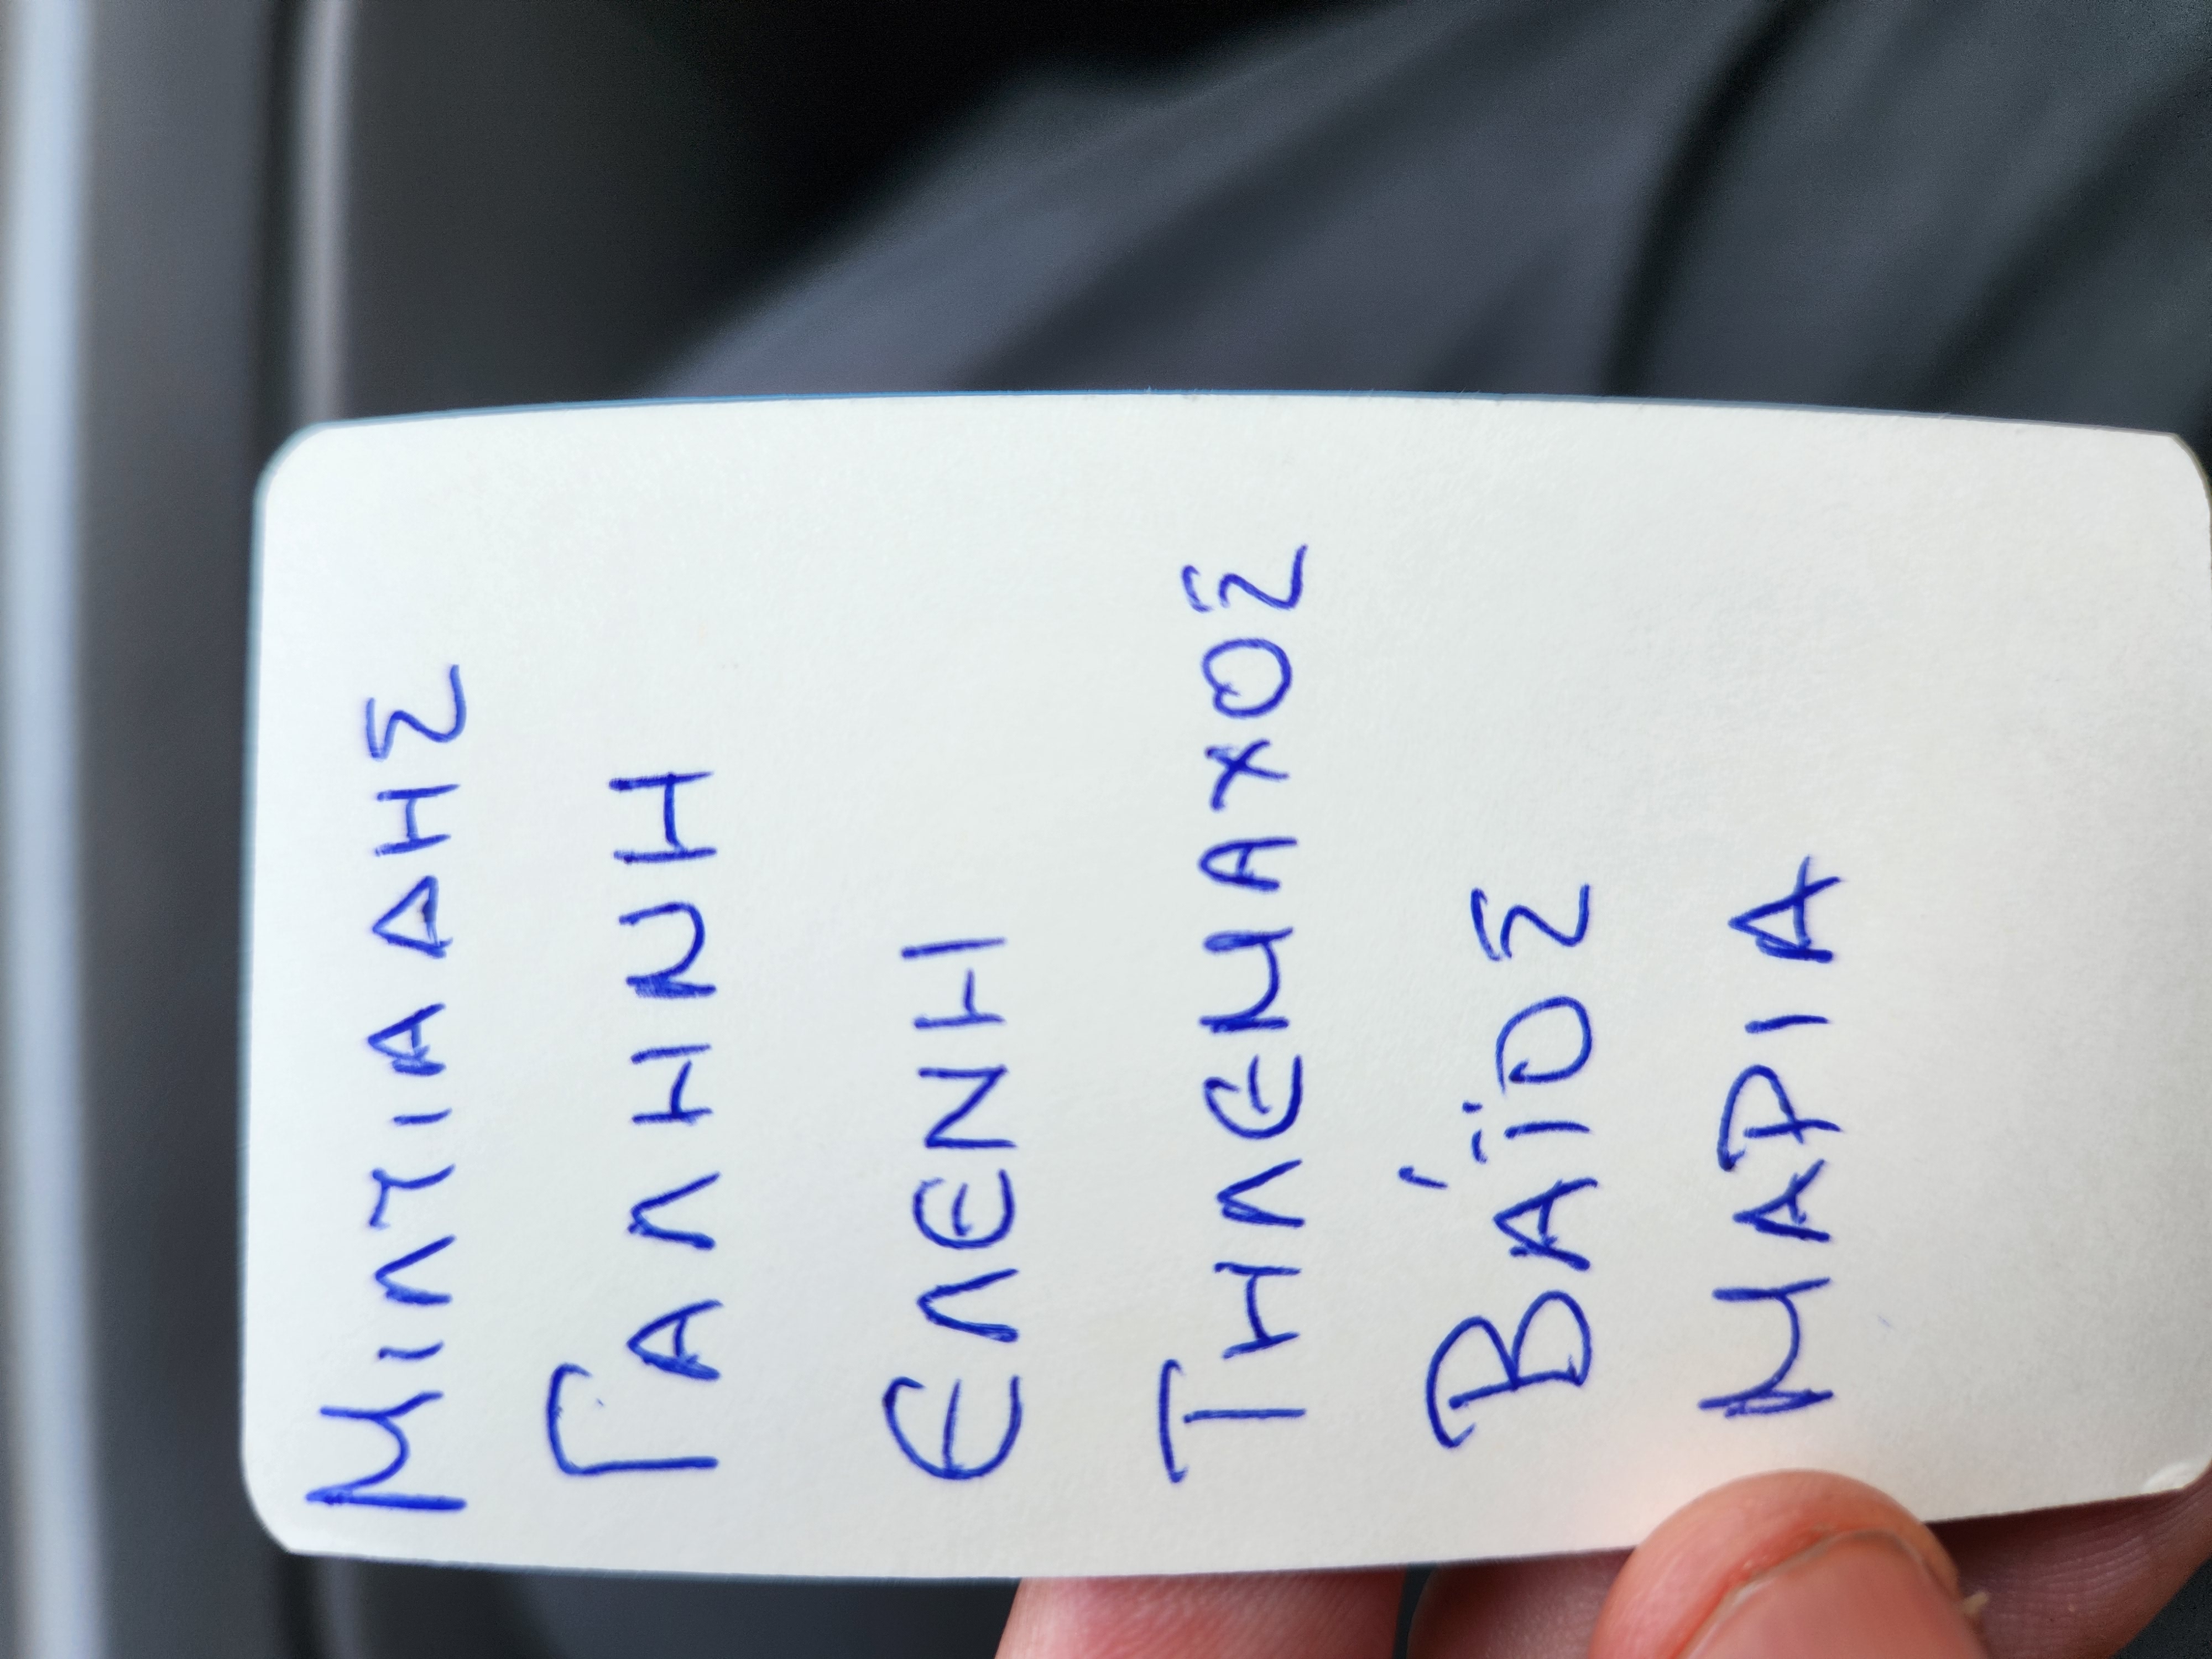 ΜΙΛΤΙΑΔΗΣ
ΓΑΛΗΝΗ
ΕΛΕΝΗ
ΤΗΛΕΜΑΧΟΣ
ΒΑΪ́ΟΣ
ΜΑΡΙΑ